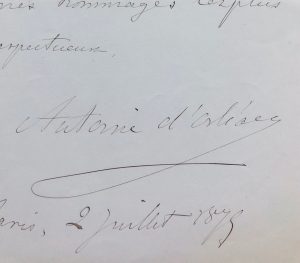 mes hommages les plus
respectueux.
Antoine d'Orléans
Paris, 2 Juillet 1875